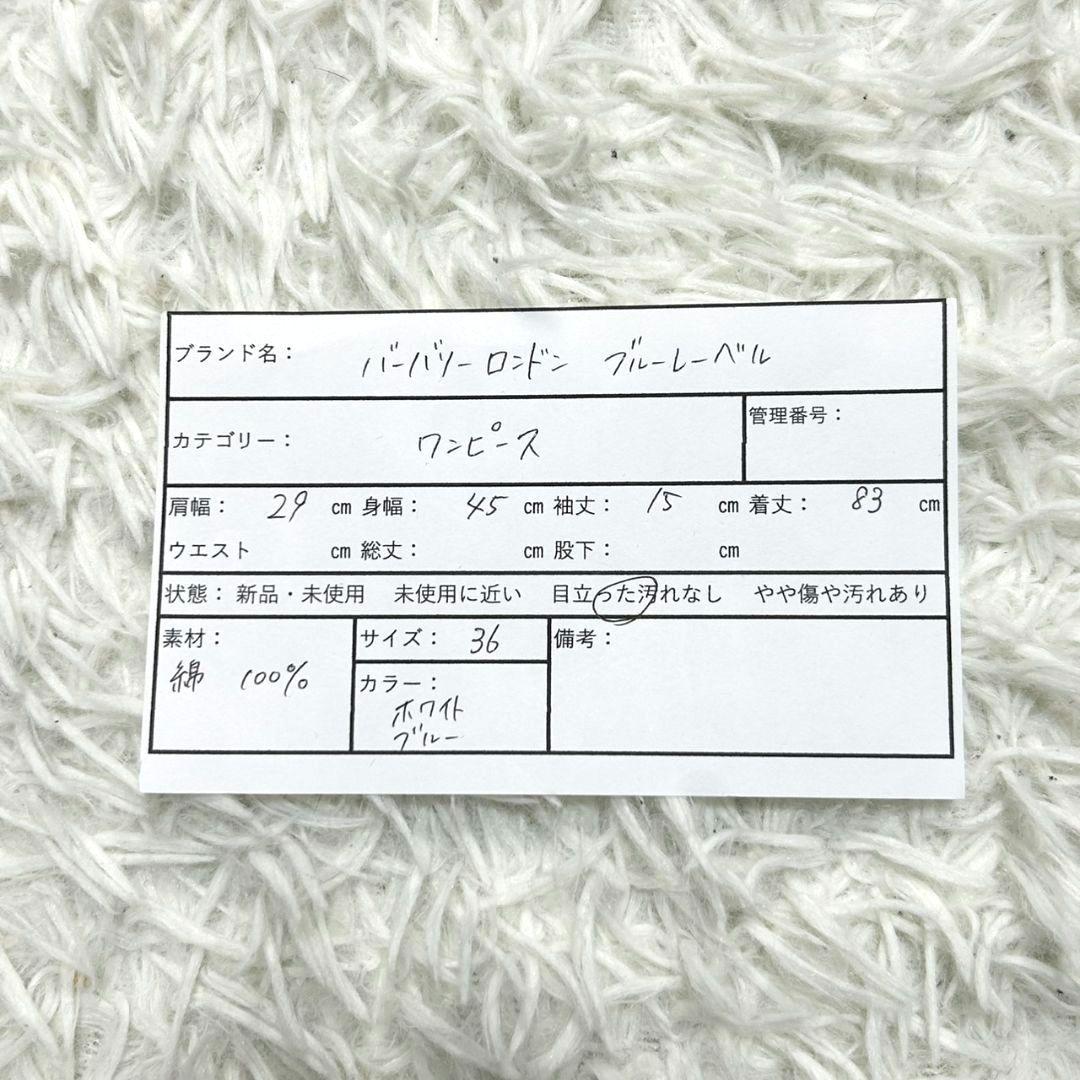 ブランド名： バーバリー ロンドン ブルーレーベル
カテゴリー： ワンピース
管理番号：
肩幅： 29 cm 身幅： 45 cm 袖丈： 15 cm 着丈： 83 cm
ウエスト cm 総丈： cm 股下： cm
状態：新品・未使用 未使用に近い 目立った汚れなし やや傷や汚れあり
素材：
綿 100%
サイズ： 36
カラー：
ホワイト
ブルー
備考：